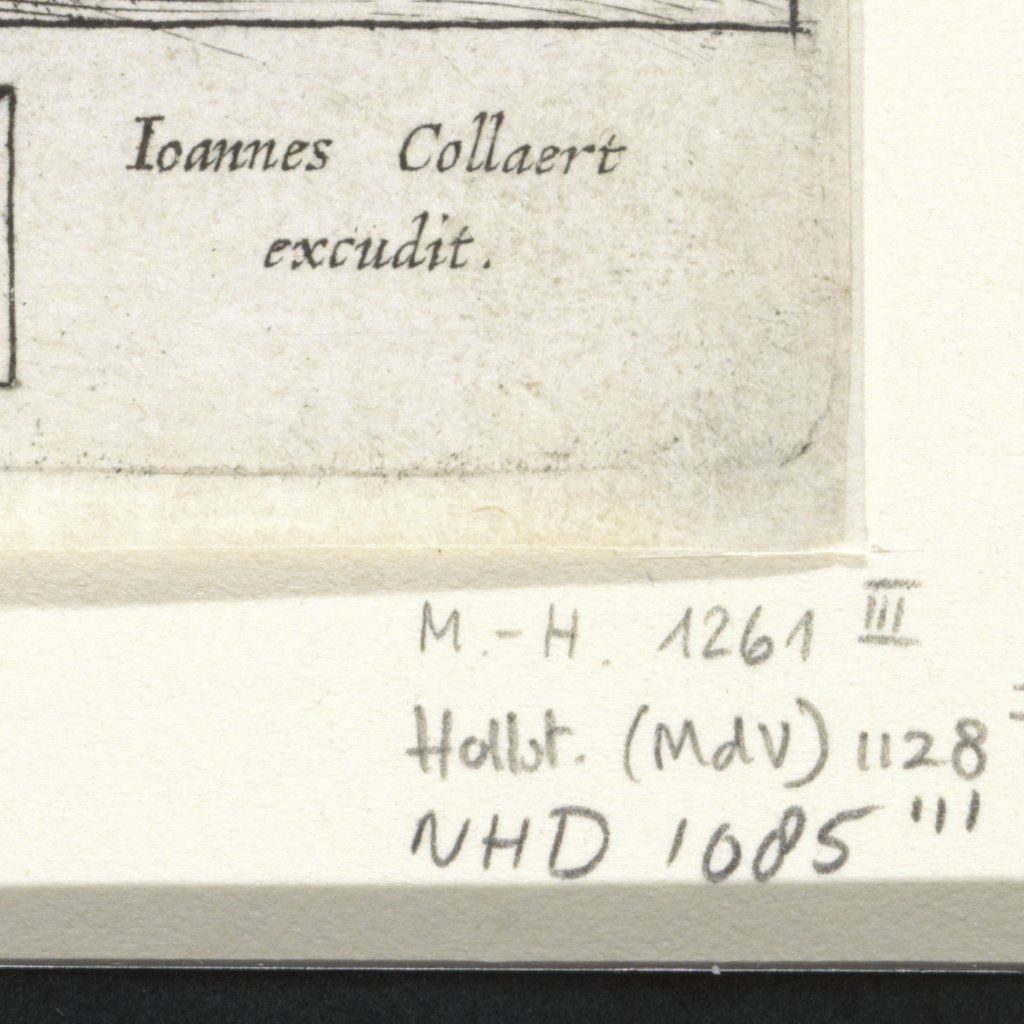 Ioannes Collaert
excudit.
M.-H. 1261 III
Hollst. (MdV) 1128
NHD 1085 III